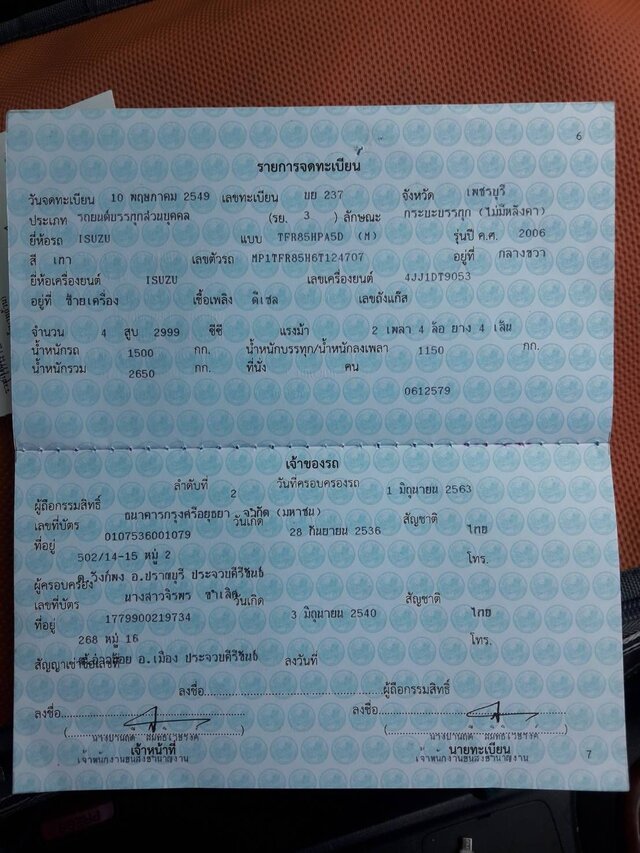 6
รายการจดทะเบียน
วันจดทะเบียน 10 พฤษภาคม 2549 เลขทะเบียน บย 237 จังหวัด เพชรบุรี
ประเภท รถยนต์บรรทุกส่วนบุคคล (รย. 3 ) ลักษณะ กระบะบรรทุก (ไม่มีหลังคา)
ยี่ห้อรถ ISUZU แบบ TFR85HPA5D (M) รุ่นปี ค.ศ. 2006
สี เทา เลขตัวรถ MP1TFR85H6T124707 อยู่ที่ กลางขวา
ยี่ห้อเครื่องยนต์ ISUZU เลขเครื่องยนต์ 4JJ1DT9053
อยู่ที่ ซ้ายเครื่อง เชื้อเพลิง ดีเซล เลขถังแก๊ส
จำนวน 4 สูบ 2999 ซีซี แรงม้า 2 เพลา 4 ล้อ ยาง 4 เส้น
น้ำหนักรถ 1500 กก. น้ำหนักบรรทุก/น้ำหนักลงเพลา 1150 กก.
น้ำหนักรวม 2650 กก. ที่นั่ง คน
0612579
เจ้าของรถ
ลำดับที่ 2 วันที่ครอบครองรถ 1 มิถุนายน 2563
ผู้ถือกรรมสิทธิ์ ธนาคารกรุงศรีอยุธยา จำกัด (มหาชน)
เลขที่บัตร 0107536001079 วันเกิด 28 กันยายน 2536 สัญชาติ ไทย
ที่อยู่ 502/14-15 หมู่ 2 โทร.
ต.วังก์พง อ.ปราณบุรี ประจวบคีรีขันธ์
ผู้ครอบครอง นางสาวจิรพร
เลขที่บัตร 1779900219734 วันเกิด 3 มิถุนายน 2540 สัญชาติ ไทย
ที่อยู่ 268 หมู่ 16 โทร.
อ.เมือง ประจวบคีรีขันธ์
สัญญาเช่าซื้อเลขที่ ลงวันที่
ลงชื่อ ผู้ถือกรรมสิทธิ์
ลงชื่อ ลงชื่อ
เจ้าหน้าที่ นายทะเบียน
เจ้าพนักงานขนส่งชำนาญงาน เจ้าพนักงานขนส่งชำนาญงาน
7